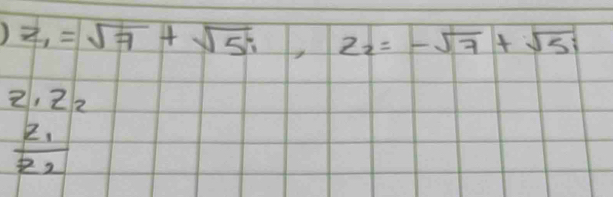 ) z₁ = √7 + √5i , z₂ = -√7 + √5i
z₁z₂
z₁
z₂